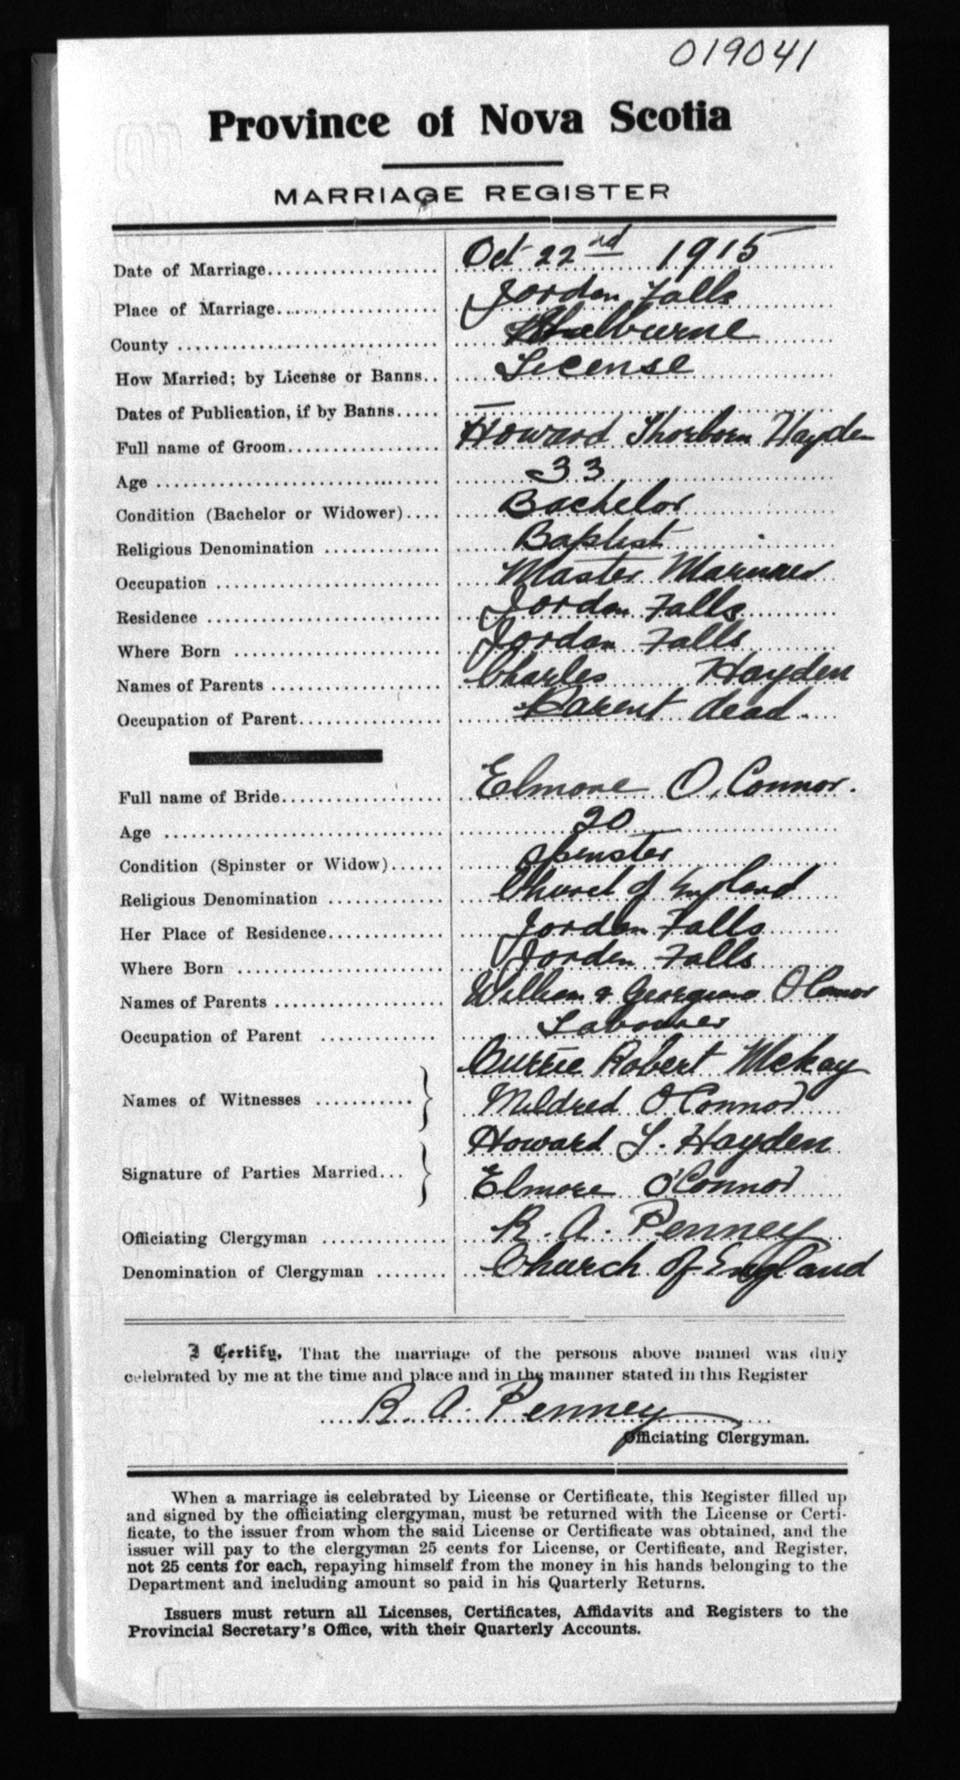 019041
Province of Nova Scotia
MARRIAGE REGISTER
Date of Marriage.................... Oct 22nd 1915
Place of Marriage.................... Jordan Falls
County ............................. Shelburne
How Married; by License or Banns.. License
Dates of Publication, if by Banns..... —
Full name of Groom.................. Howard Thorborn Hayden
Age ............................... 33
Condition (Bachelor or Widower).... Bachelor
Religious Denomination ............. Baptist
Occupation ......................... Master Mariner
Residence .......................... Jordan Falls
Where Born ........................ Jordan Falls
Names of Parents ................... Charles Hayden
Occupation of Parent................. Parent dead.
Full name of Bride................... Elmore O, Connor.
Age ............................... 20
Condition (Spinster or Widow)...... Spinster
Religious Denomination ............. Church of England
Her Place of Residence.............. Jorden Falls
Where Born ........................ Jorden Falls
Names of Parents ................... William & Georgina O'Connor
Occupation of Parent ............. Labourer
Names of Witnesses ........... } Currie Robert McKay
Mildred O'Connor
Signature of Parties Married... } Howard T. Hayden
Elmore O'Connor
Officiating Clergyman ............. R. A. Penney
Denomination of Clergyman ........ Church of England
I Certify, That the marriage of the persons above named was duly
celebrated by me at the time and place and in the manner stated in this Register
R. A. Penney
Officiating Clergyman.
When a marriage is celebrated by License or Certificate, this Register filled up
and signed by the officiating clergyman, must be returned with the License or Certi-
ficate, to the issuer from whom the said License or Certificate was obtained, and the
issuer will pay to the clergyman 25 cents for License, or Certificate, and Register,
not 25 cents for each, repaying himself from the money in his hands belonging to the
Department and including amount so paid in his Quarterly Returns.
Issuers must return all Licenses, Certificates, Affidavits and Registers to the
Provincial Secretary's Office, with their Quarterly Accounts.